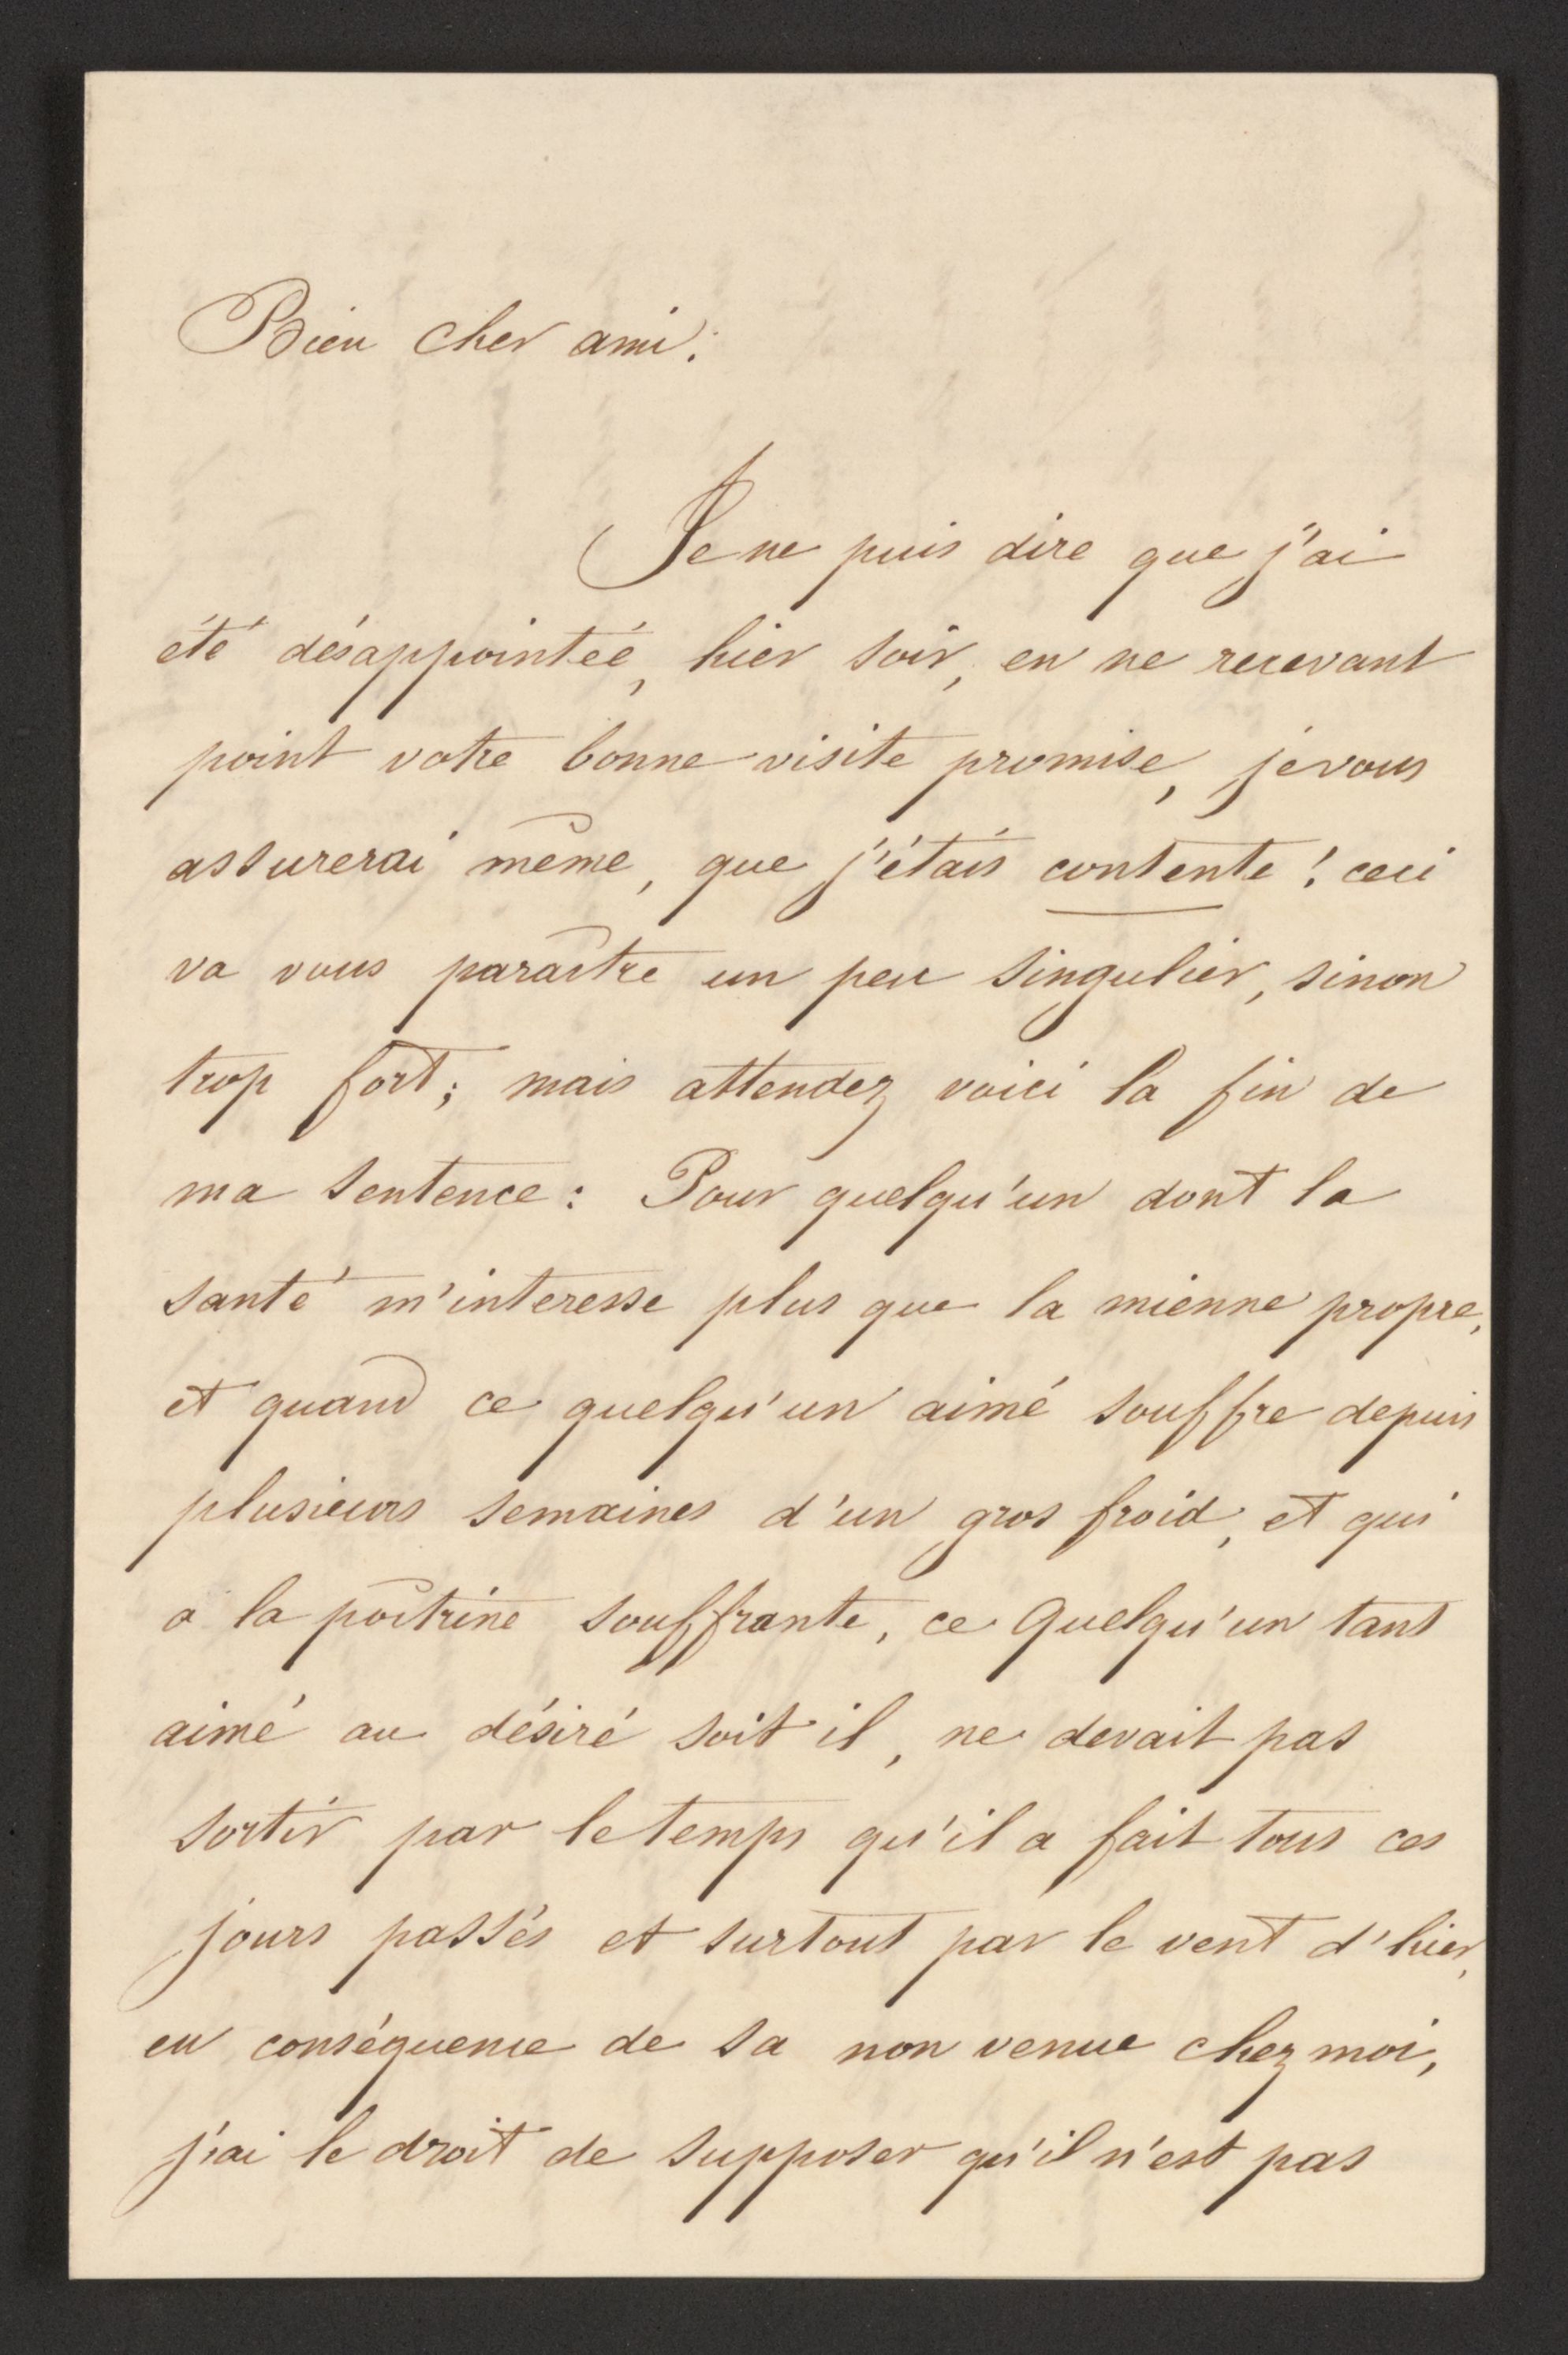 Bien cher ami:
Je ne puis dire que j'ai
été désappointée, hier soir, en ne recevant
point votre bonne visite promise, je vous
assurerai même, que j'étais contente! ceci
va vous paraître un peu singulier, sinon
trop fort; mais attendez voici la fin de
ma sentence: Pour quelqu'un dont la
santé m'interesse plus que la mienne propre,
et quand ce quelqu'un aimé souffre depuis
plusieurs semaines d'un gros froid, et qui
a la poîtrine souffrante, ce quelqu'un tant
aimé ou désiré soit il, ne devait pas
sortir par le temps qu'il a fait tous ces
jours passés et surtout par le vent d'hier,
en conséquence de sa non venue chez moi,
j'ai le droit de supposer qu'il n'est pas